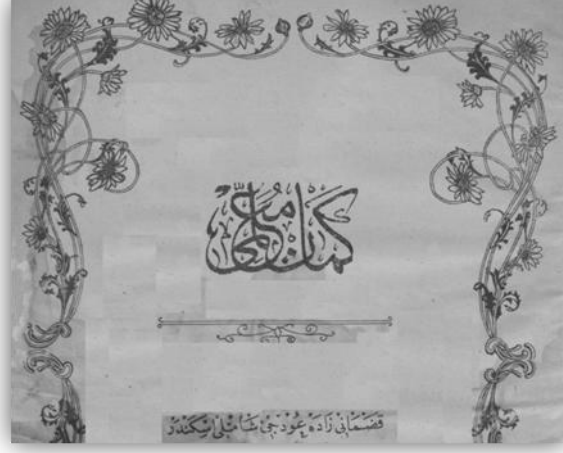 كمان معلمى
قضمانى زاده عودجى شاملى اسكندر